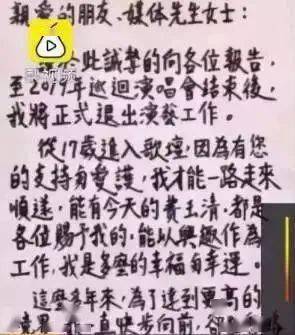 親愛的朋友、媒体先生女士：
於此誠摯的向各位報告，
至2019年巡迴演唱會結束後，
我將正式退出演藝工作。
從17歲進入歌壇，因為有您
的支持與愛護，我才能一路走來
順遂，能有今天的費玉清，都是
各位賜予我的，能以興趣作為
工作，我是多麼的幸福與幸運。
這麼多年來，為了達到更高的
直快步向前，卻